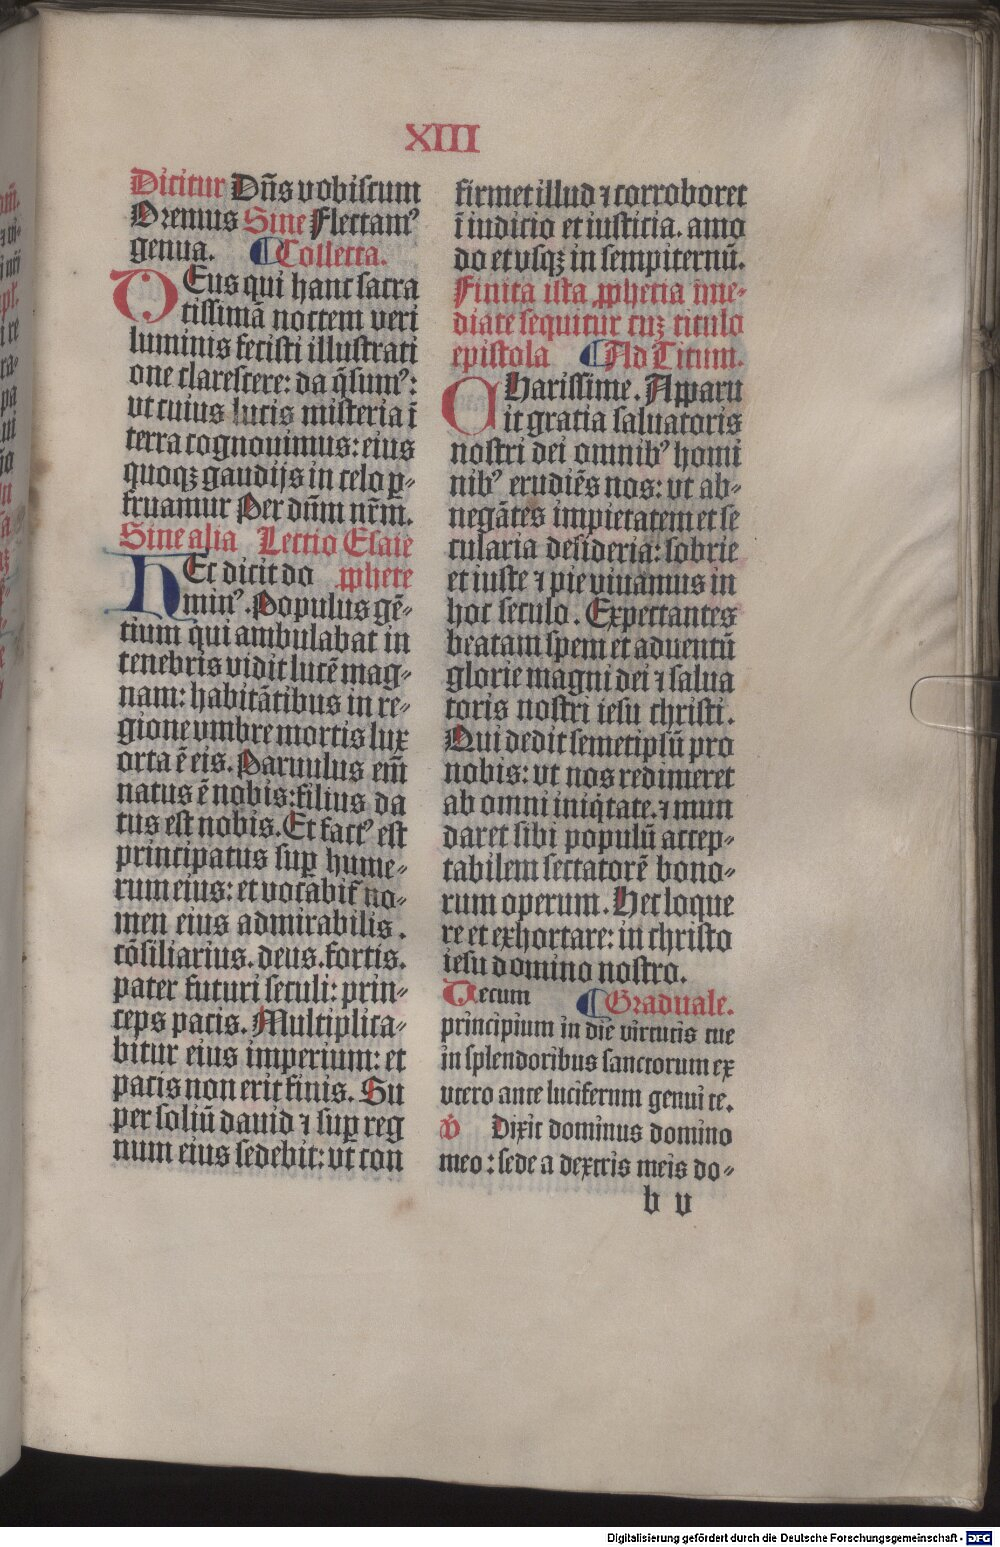 XIII
Dicitur Dñs vobiscum
Oremus Sine Flectamꝰ
genua. ¶Collecta.
DEus qui hanc sacra
tissimã noctem veri
luminis fecisti illustrati
one clarescere: da q̃sumꝰ:
vt cuius lucis misteria ĩ
terra cognouimus: eius
quoqꝫ gaudijs in celo ꝑ-
fruamur Per dñm nr̃m.
Sine alia Lectio Esaie
HEc dicit do ꝓphete
minꝰ. Populus gẽ-
tium qui ambulabat in
tenebris vidit lucẽ mag-
nam: habitãtibus in re-
gione vmbre mortis lux
orta ẽ eis. Paruulus em̃
natus ẽ nobis: filius da
tus est nobis. Et factꝰ est
principatus suꝑ hume-
rum eius: et vocabit̃ no-
men eius admirabilis.
cõsiliarius. deus. fortis.
pater futuri seculi: prin-
ceps pacis. Multiplica-
bitur eius imperium: et
pacis non erit finis. Su
per soliũ dauid ⁊ suꝑ reg
num eius sedebit: vt con
firmet illud ⁊ corroboret
ĩ iudicio et iusticia. amo
do et vsqꝫ in sempiternũ.
Finita ista ꝓphecia ime-
diate sequitur cuꝫ titulo
epistola ¶Ad Titum.
CHarissime. Apparu
it gratia saluatoris
nostri dei omnibꝰ homi
nibꝰ erudiẽs nos: vt ab-
negãtes impietatem et se
cularia desideria: sobrie
et iuste ⁊ pie viuamus in
hoc seculo. Expectantes
beatam spem et aduentũ
glorie magni dei ⁊ salua
toris nostri iesu christi.
Qui dedit semetipsũ pro
nobis: vt nos redimeret
ab omni iniq̃tate. ⁊ mun
daret sibi populũ accep-
tabilem sectatorẽ bono-
rum operum. Hec loque
re et exhortare: in christo
iesu domino nostro.
Tecum ¶Graduale.
principium in die virtutis tue
in splendoribus sanctorum ex
vtero ante luciferum genui te.
v̾ Dixit dominus domino
meo: sede a dextris meis do-
b v
Digitalisierung gefördert durch die Deutsche Forschungsgemeinschaft - DFG